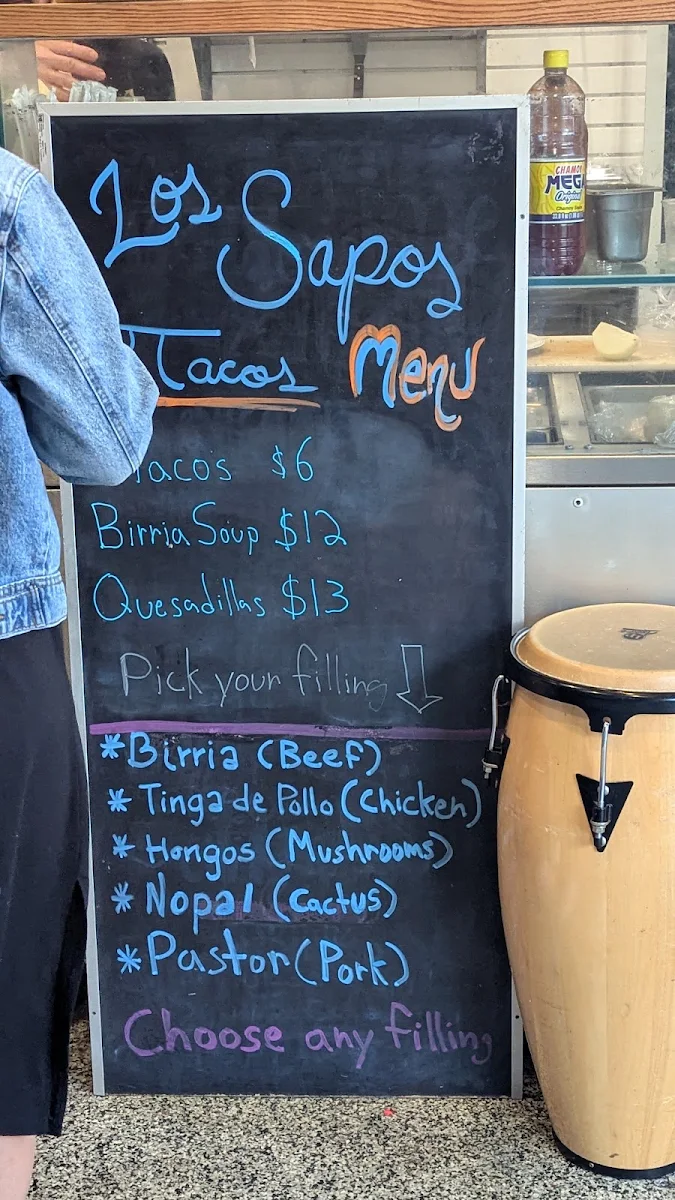 Los Sapos
Tacos Menu
Tacos $6
Birria Soup $12
Quesadillas $13
Pick your filling
*Birria (Beef)
* Tinga de Pollo (Chicken)
* Hongos (Mushrooms)
* Nopal (Cactus)
* Pastor (Pork)
Choose any filling
CHAMOY
MEGA
Original